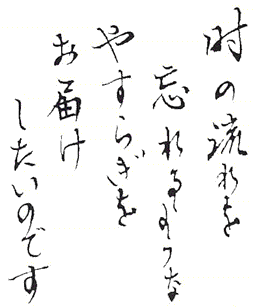 時の流れを
忘れるような
やすらぎを
お届け
したいのです